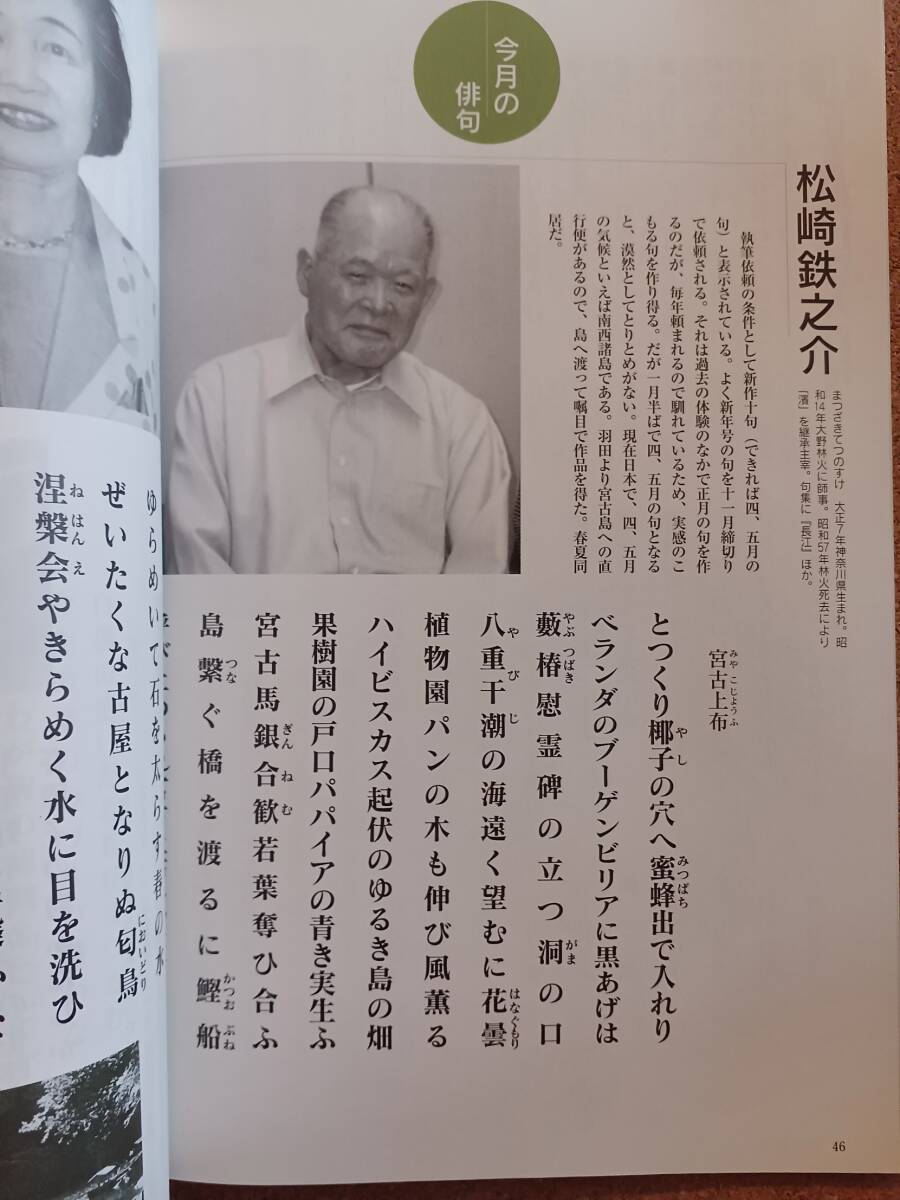 今月の
俳句
松崎鉄之介
まつざきてつのすけ　大正7年神奈川県生まれ。昭
和14年大野林火に師事。昭和57年林火死去により
「濱」を継承主宰。句集に『長江』ほか。
執筆依頼の条件として新作十句（できれば四、五月の
句）と表示されている。よく新年号の句を十一月締切り
で依頼される。それは過去の体験のなかで正月の句を作
るのだが、毎年頼まれるので馴れているため、実感のこ
もる句を作り得る。だが一月半ばで四、五月の句となる
と、漠然としてとりとめがない。現在日本で、四、五月
の気候といえば南西諸島である。羽田より宮古島への直
行便があるので、島へ渡って嘱目で作品を得た。春夏同
居だ。
宮古上布
みやこじょうふ
とつくり椰子の穴へ蜜蜂出で入れり
やし　みつばち
ベランダのブーゲンビリアに黒あげは
藪椿慰霊碑の立つ洞の口
やぶつばき　がま
八重干潮の海遠く望むに花曇
やびじ　はなぐもり
植物園パンの木も伸び風薫る
ハイビスカス起伏のゆるき島の畑
果樹園の戸口パパイアの青き実生ふ
宮古馬銀合歓若葉奪ひ合ふ
ぎんねむ
島繋ぐ橋を渡るに鰹船
つな　かつおぶね
46
ゆらめいて石を太らす春の水
ぜいたくな古屋となりぬ匂鳥
においどり
涅槃会やきらめく水に目を洗ひ
ねはんえ